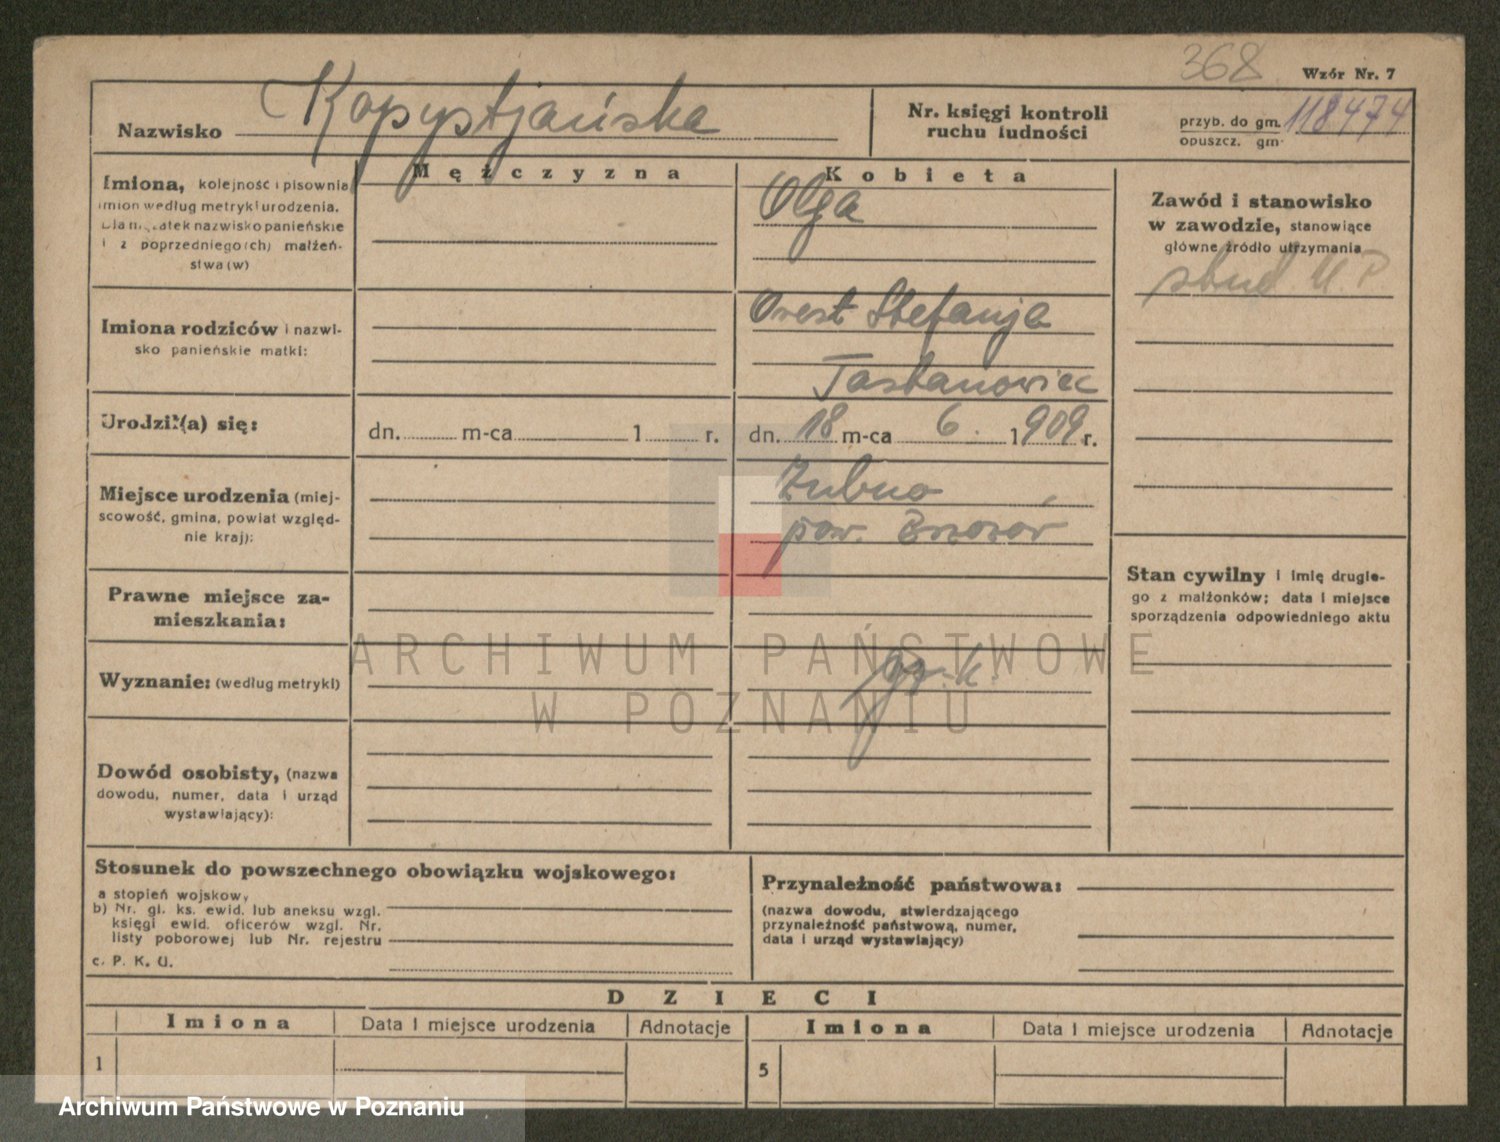 368
Wzór Nr. 7
Nazwisko Kopystjańska
Nr. księgi kontroli ruchu ludności
przyb. do gm. 118474
opuszcz. gm.
Mężczyzna
Kobieta
Imiona, kolejność i pisownia
imion według metryki urodzenia.
Dla mężatek nazwisko panieńskie
i z poprzedniego(ch) małżeń-
stwa (w)
Olga
Zawód i stanowisko
w zawodzie, stanowiące
główne źródło utrzymania
stud. U. P.
Imiona rodziców i nazwi-
sko panieńskie matki:
Orest Stefanja
Tastanowiec
Urodził(a) się:
dn. m-ca 1 r.
dn. 18 m-ca 6. 1909 r.
Miejsce urodzenia (miej-
scowość, gmina, powiat względ-
nie kraj):
pow.
Stan cywilny i imię drugie-
go z małżonków; data i miejsce
sporządzenia odpowiedniego aktu
Prawne miejsce za-
mieszkania:
ARCHIWUM PAŃSTWOWE
W POZNANIU
Wyznanie: (według metryki)
gr. k.
Dowód osobisty, (nazwa
dowodu, numer, data i urząd
wystawiający):
Stosunek do powszechnego obowiązku wojskowego:
a stopień wojskowy
b) Nr. gl. ks. ewid. lub aneksu wzgl.
księgi ewid. oficerów wzgl. Nr.
listy poborowej lub Nr. rejestru
c. P. K. U.
Przynależność państwowa:
(nazwa dowodu, stwierdzającego
przynależność państwową, numer,
data i urząd wystawiający)
DZIECI
Imiona Data i miejsce urodzenia Adnotacje Imiona Data i miejsce urodzenia Adnotacje
1 5
Archiwum Państwowe w Poznaniu